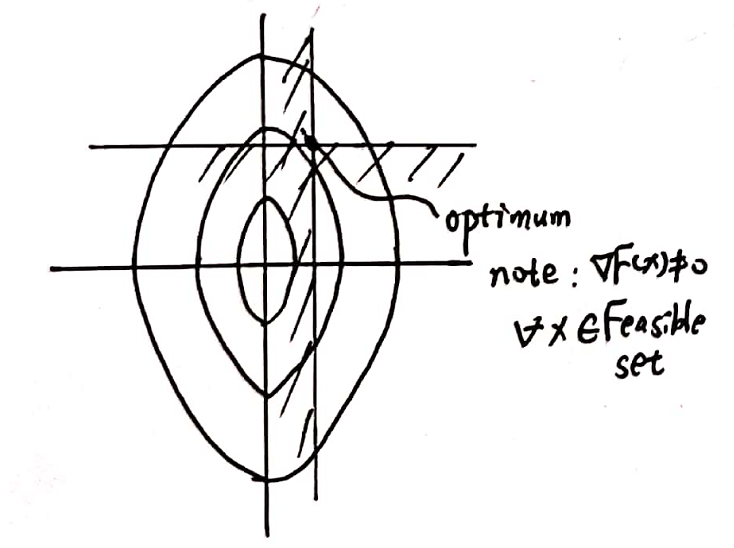 optimum
note : ∇F(x) ≠ 0
∀ x ∈ Feasible
set